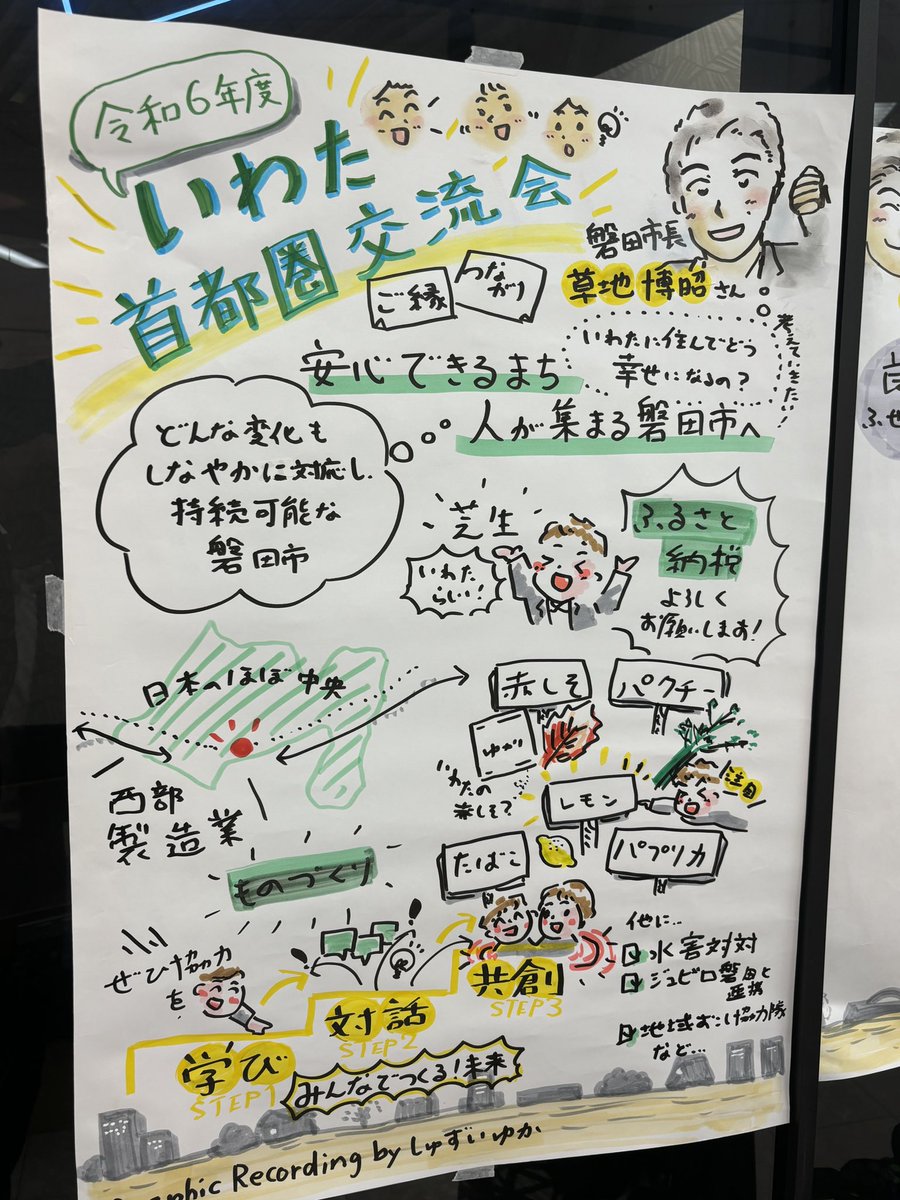 令和6年度
いわた
首都圏交流会
磐田市長
草地博昭さん
ご縁
つながり
いわたに住んでどう
幸せになるの?
考えていきたい!
安心できるまち
人が集まる磐田市へ
どんな変化も
しなやかに対応し、
持続可能な
磐田市
芝生
いわた
らしい!
ふるさと
納税
よろしく
お願いします!
日本のほぼ中央
西部
製造業
ものづくり
赤しそ
パクチー
ゆかり
の
赤しそ?
注目
レモン
たばこ
パプリカ
ぜひ協力
を
学び
STEP1
対話
STEP2
共創
STEP3
みんなでつくる!未来
他に…
水害対対
ジュビロ磐田と
連携
地域おこし協力隊
など…
Recording by しゅずいゆか